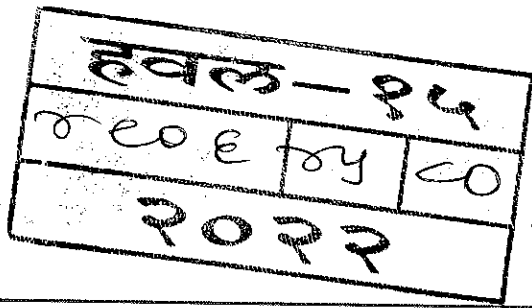 हवल-१५
४९०६ ४५ ८०
२०२२